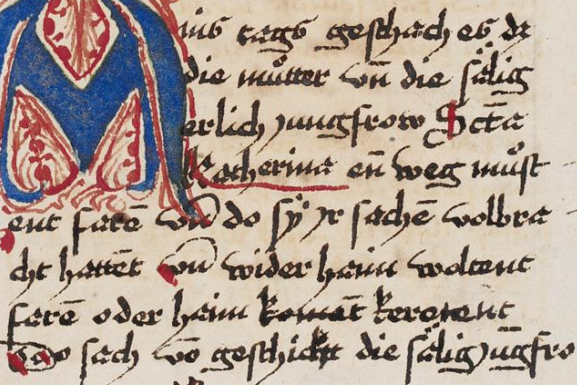 ins tags geschach es dz
die muͦter vn̄ die sälig
erlich jungfrow Sctā
Katherina en weg muͦst
ent farē vn̄ do sÿ jr sachē volbra
cht hattēt vn̄ wider haim woltent
farē oder haim komēt kerētent
do sach vō geschicht die sälig jūgfro